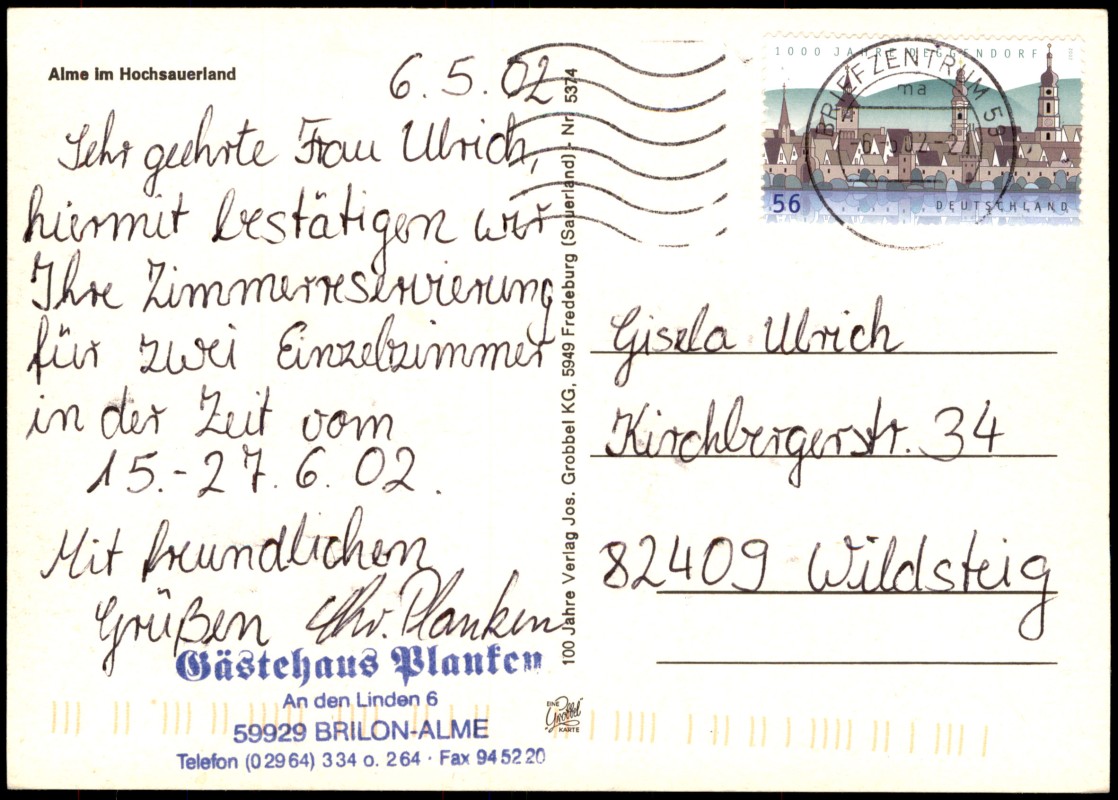 Alme im Hochsauerland
6.5.02
Sehr geehrte Frau Ulrich,
hiermit bestätigen wir
Ihre Zimmerreservierung
für zwei Einzelzimmer
in der Zeit vom
15.-27.6.02.
Mit freundlichen
Grüßen Chr. Planken
Gästehaus Planken
An den Linden 6
59929 BRILON-ALME
Telefon (02964) 334 o. 264 · Fax 945220
100 Jahre Verlag Jos. Grobbel KG, 5949 Fredeburg (Sauerland) - Nr. 5374
EINE
Grobbel
KARTE
1000 JAHRE DEGGENDORF
56
DEUTSCHLAND
BRIEFZENTRUM 59
ma
Gisela Ulrich
Kirchbergerstr. 34
82409 Wildsteig